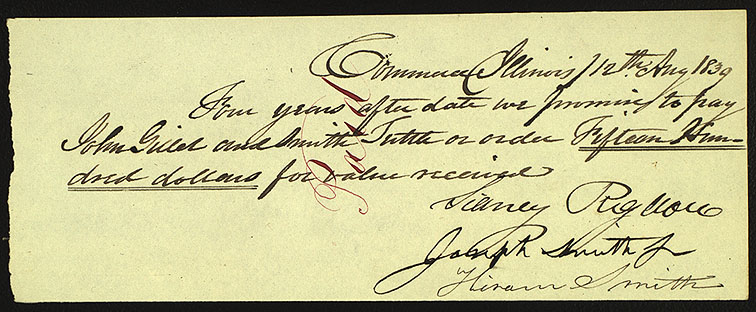 Commerce Illinois 12th Aug 1839
Four years after date we promise to pay
John Gillet and Smith Tuttle or order Fifteen Hun-
dred dollars for value received
Paid
Sidney Rigdon
Joseph Smith Jr
Hiram Smith